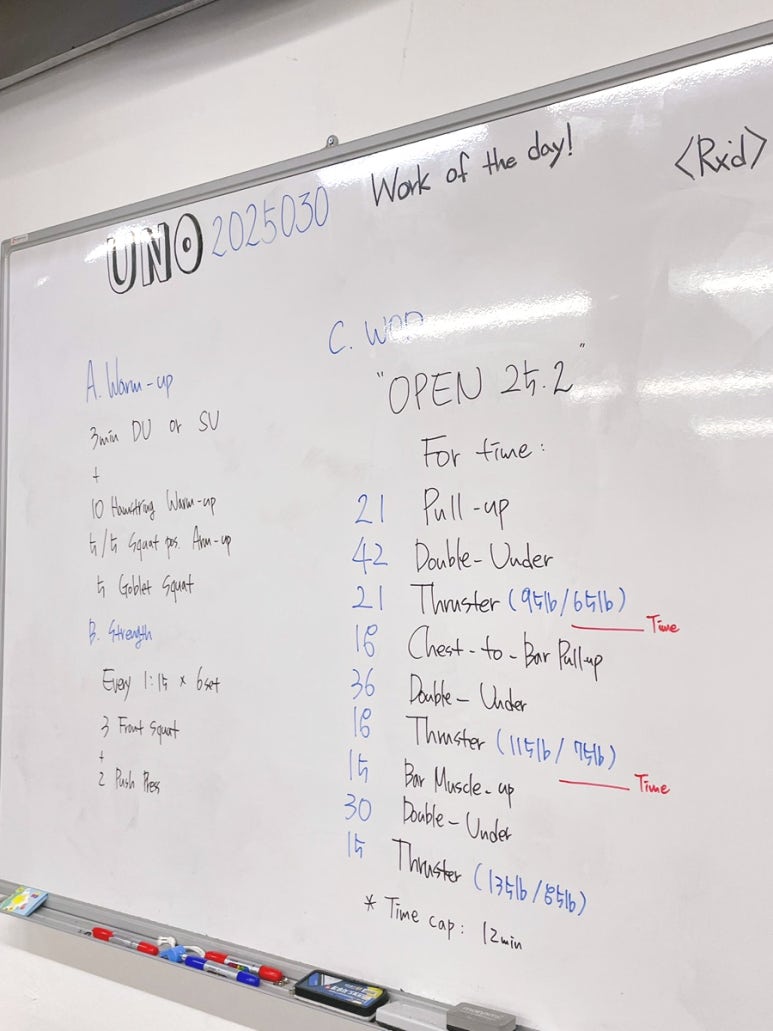 UNO 2025030
Work of the day!
<Rx'd>
A. Warm-up
3min DU or SU
+
10 Hamstring Warm-up
5/5 Squat pos. Arm-up
5 Goblet Squat
B. Strength
Every 1:15 × 6set
3 Front Squat
+
2 Push Press
C. WOD
"OPEN 25.2"
For time:
21 Pull-up
42 Double-Under
21 Thruster (95lb/65lb)
Time
18 Chest-to-Bar Pull-up
36 Double-Under
18 Thruster (115lb/75lb)
Time
15 Bar Muscle-up
30 Double-Under
15 Thruster (135lb/85lb)
* Time cap: 12min